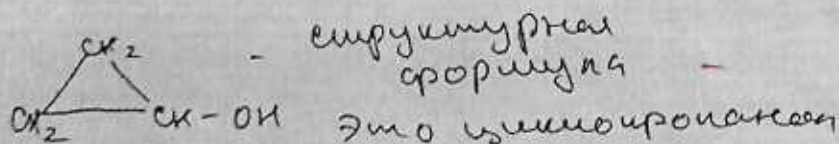 CH2 - структурная
формула -
CH2 CH - OH это циклопропанол